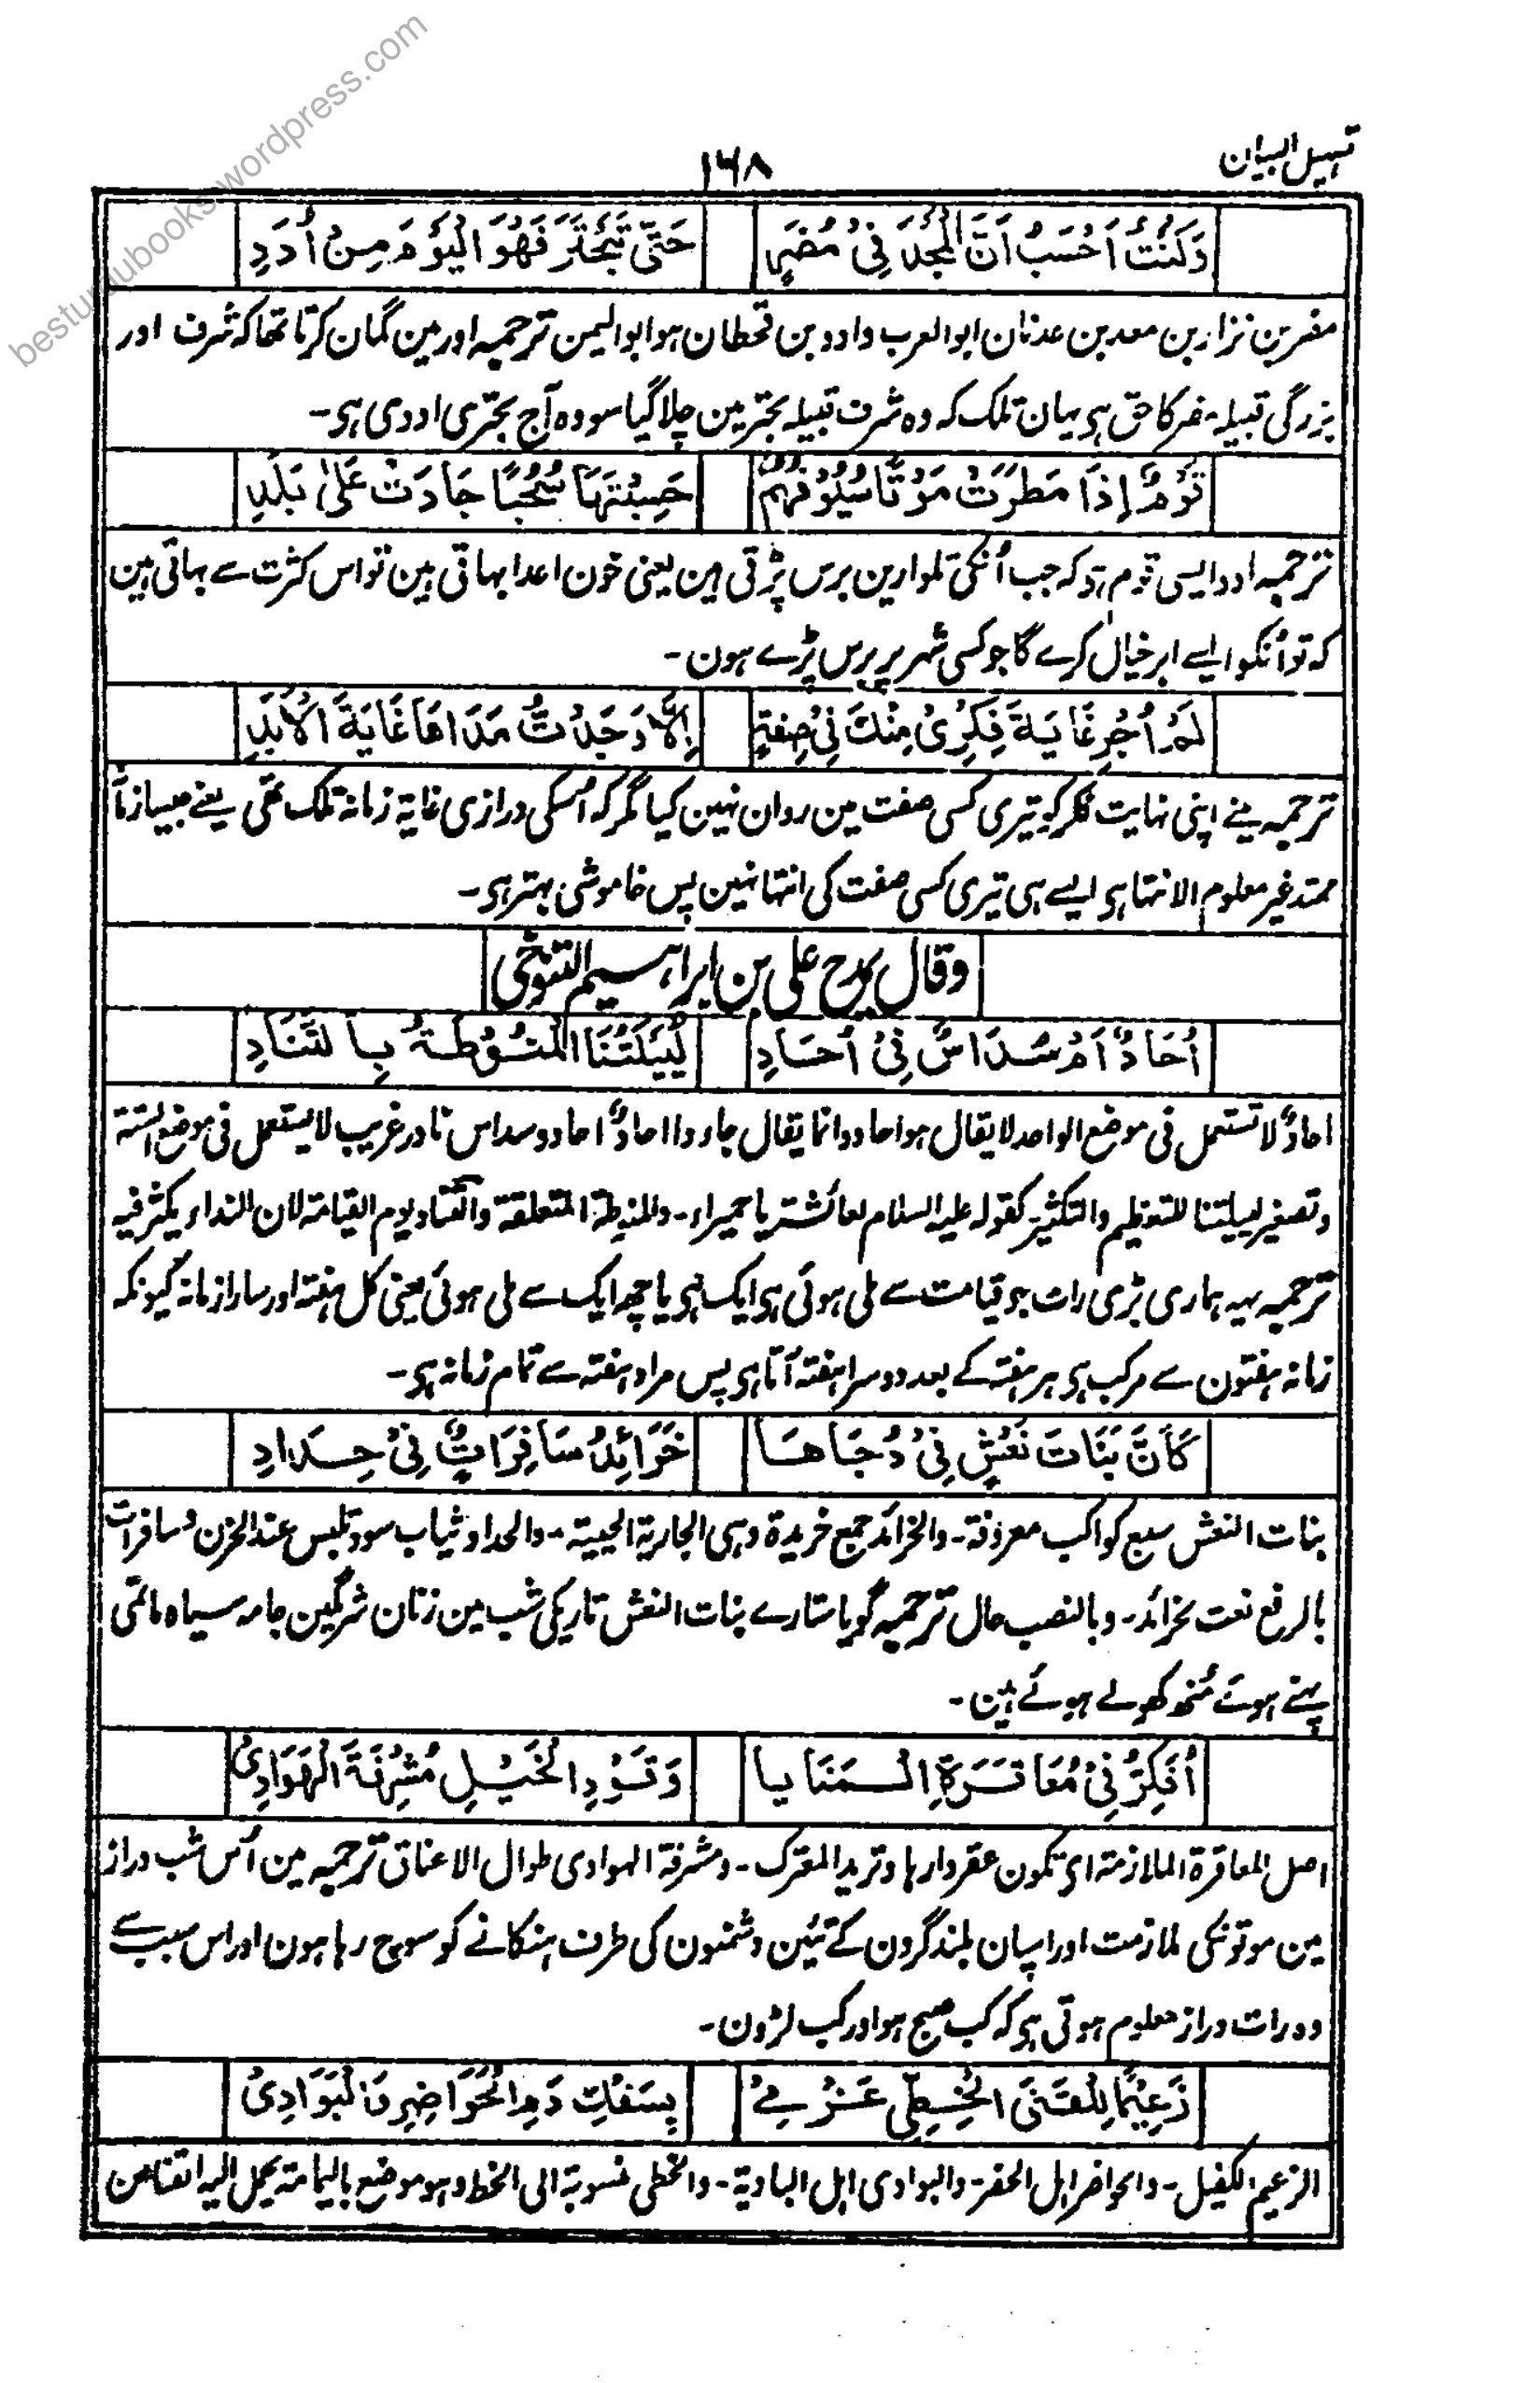 تسہیل البیان
۱۶۸
وَكُنْتُ اَحْسَبُ اَنَّ الْمَجْدَ فِىْ مُضَرٍ حَتّٰى تَبَحْتَرَ فَهُوَ الْيَوْمَ مِنْ اُدَدِ
مضر بن نزار بن معد بن عدنان ابو العرب و ادد بن قحطان ہو ابو الیمن ترجمہ اور مین گمان کرتا تھا کہ شرف اور
بزرگی قبیلہ مضر کا حق ہی یہان تلک کہ وہ شرف قبیلہ بحتر مین چلا گیا سو وہ آج بحتری اددی ہی۔
قَوْمٌ اِذَا مَطَرَتْ مَوْتًا سُيُوْفُهُمْ حَسِبْتَهَا سُحُبًا جَادَتْ عَلٰى بَلَدِ
ترجمہ ادد ایسی قوم ہی کہ جب اُنکی تلوارین برس پڑتی ہین یعنی خون اعدا بہاتی ہین تو اس کثرت سے بہاتی ہین
کہ تو اُنکو ایسے ابر خیال کرے گا جو کسی شہر پر برس پڑے ہون۔
لَمْ اُجْرِ غَايَةَ فِكْرِىْ مِنْكَ فِىْ صِفَةٍ اِلَّا وَجَدْتُ مَدَاهَا غَايَةَ الْاَبَدِ
ترجمہ مینے اپنی نہایت فکر کو تیری کسی صفت مین روان نہین کیا مگر کہ اُسکی درازی غایۃ زمانہ تلک تھی یعنے جیسا زمانہ
ممتد غیر معلوم الانتہا ہی ایسے ہی تیری کسی صفت کی انتہا نہین پس خاموشی بہتر ہی۔
وقال یمدح علی بن ابراہیم التنوخی
اُحَادٌ اَمْ سُدَاسٌ فِىْ اُحَادِ لُيَيْلَتُنَا الْمَنُوْطَةُ بِالتَّنَادِ
احادٌ لا تستعمل فی موضع الواحد لا یقال ہو احاد و انما یقال جاء وا احادٌ احاد و سداس نادر غریب لا یستعمل فی موضع الستۃ
و تصغیر لییلتنا للتعظیم والتکثیر کقولہ علیہ السلام لعائشۃ یا حمیراء۔ والمنوطۃ المتعلقۃ والتناد یوم القیامۃ لان النداء یکثر فیہ
ترجمہ یہہ ہماری بڑی رات جو قیامت سے ملی ہوئی ہی ایک ہی یا چھ ایک سے ملی ہوئی یعنی کل ہفتہ اور سارا زمانہ کیونکہ
زمانہ ہفتون سے مرکب ہی ہر ہفتہ کے بعد دوسرا ہفتہ آتا ہی پس مراد ہفتہ سے تمام زمانہ ہی۔
كَاَنَّ بَنَاتَ نَعْشٍ فِىْ دُجَاهَا خَرَائِدُ سَافِرَاتٌ فِىْ حِدَادِ
بنات النعش سبع کواکب معروفۃ۔ والخرائد جمع خریدۃ وہی الجاریۃ الحییۃ۔ والحداد ثیاب سود تلبس عند الحزن و سافرات
بالرفع نعت بخرائد۔ و بالنصب حال ترجمہ گویا ستارے بنات النعش تاریکی شب مین زنان شرمگین جامہ سیاہ ماتمی
پہنے ہوئے مُنھ کھولے ہوئے ہین۔
اُفَكِّرُ فِىْ مُعَاقَرَةِ الْمَنَايَا وَقَوْدِ الْخَيْلِ مُشْرِفَةَ الْهَوَادِىْ
اصل المعاقرۃ الملازمۃ ای تکون عقر دارہا و ترید المعرک۔ و مشرفۃ الہوادی طوال الاعناق ترجمہ مین اُس شب دراز
مین موتونکی ملازمت اور اسپان بلند گردن کے تئین دشمنون کی طرف ہنکانے کو سوچ رہا ہون اور اس سبب سے
وہ رات دراز معلوم ہوتی ہی کہ کب صبح ہو اور کب لڑون۔
زَعِيْمًا لِلْقَنَى الْخَطِّىِّ عَزْمِىْ بِسَفْكِ دَمِ الْحَوَاضِرِ وَالْبَوَادِىْ
الزعیم الکفیل۔ والحواضر اہل الحضر۔ والبوادی اہل البادیۃ۔ والخطی منسوبۃ الی الخط و ہو موضع بالیمامۃ یحمل الیہ القنا من
besturdubooks.wordpress.com